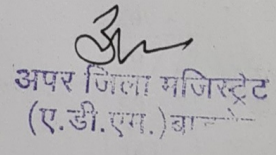 अपर जिला मजिस्ट्रेट
(ए.डी.एम.)